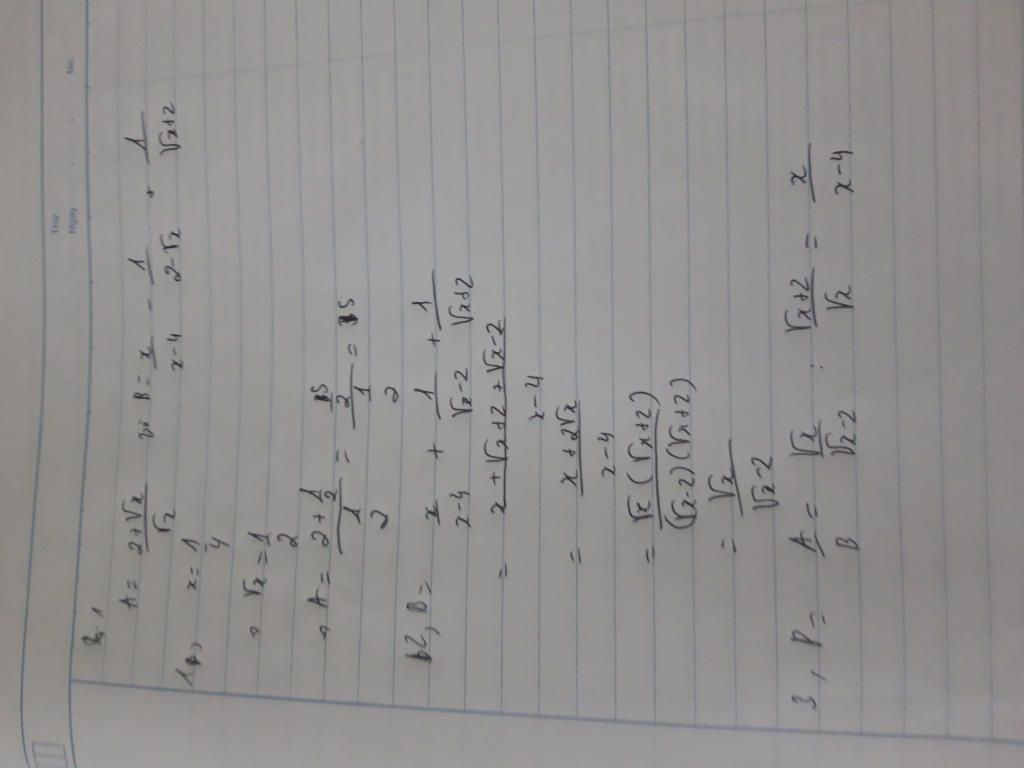 Thứ
Ngày No.
Bài 1
A = \frac{2+\sqrt{x}}{\sqrt{x}} và B = \frac{x}{x-4} - \frac{1}{2-\sqrt{x}} + \frac{1}{\sqrt{x}+2}
1, x = \frac{1}{4}
\sqrt{x} = \frac{1}{2}
A = \frac{2+\frac{1}{2}}{\frac{1}{2}} = \frac{\frac{5}{2}}{\frac{1}{2}} = 5
2, B = \frac{x}{x-4} + \frac{1}{\sqrt{x}-2} + \frac{1}{\sqrt{x}+2}
= \frac{x+\sqrt{x}+2+\sqrt{x}-2}{x-4}
= \frac{x+2\sqrt{x}}{x-4}
= \frac{\sqrt{x}(\sqrt{x}+2)}{(\sqrt{x}-2)(\sqrt{x}+2)}
= \frac{\sqrt{x}}{\sqrt{x}-2}
3, P = \frac{A}{B} = \frac{\sqrt{x}}{\sqrt{x}-2} : \frac{\sqrt{x}+2}{\sqrt{x}} = \frac{x}{x-4}